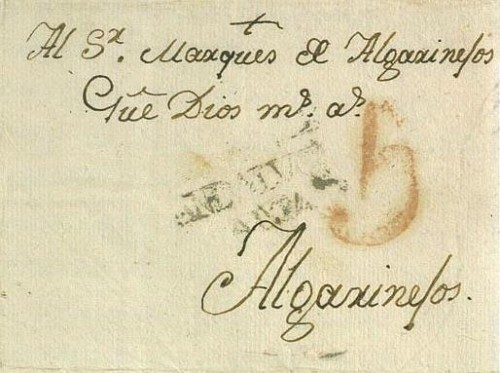 +
Al Sr. Marques de Algarinejos
Que Dios ms. as.
5
Algarinejos.